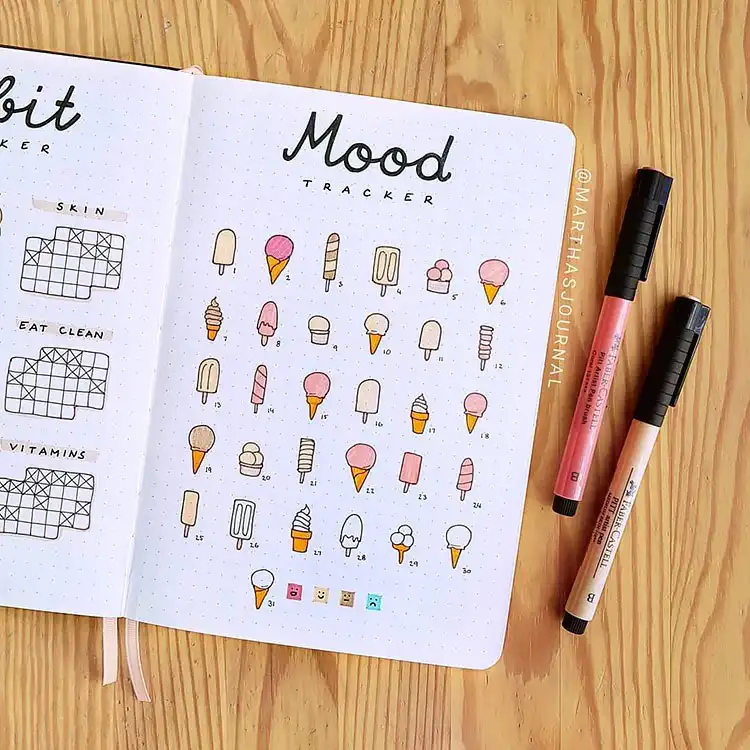 bit
KER
SKIN
EAT CLEAN
VITAMINS
Mood
TRACKER
1 2 3 4 5 6
7 8 9 10 11 12
13 14 15 16 17 18
19 20 21 22 23 24
25 26 27 28 29 30
31
@MARTHASJOURNAL
FABER-CASTELL
Pitt Artist Pen Brush
B
FABER-CASTELL
PITT artist pen
B